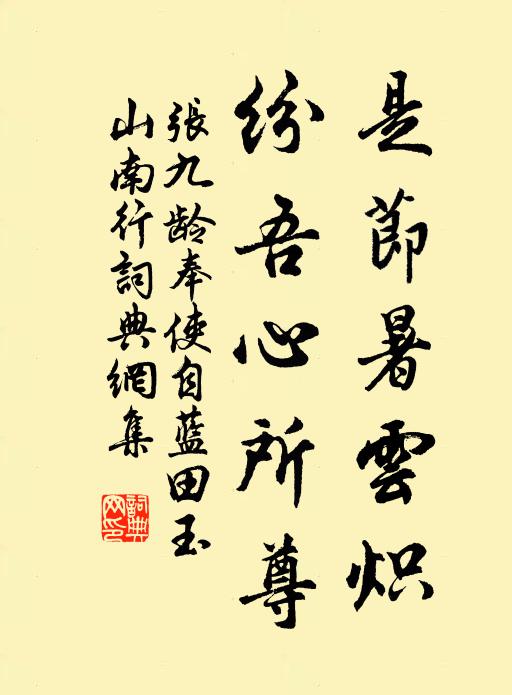 是節暑雲炽
纷吾心所尊
張九龄奉使自藍田玉
山南行詞典網集
詞典網印